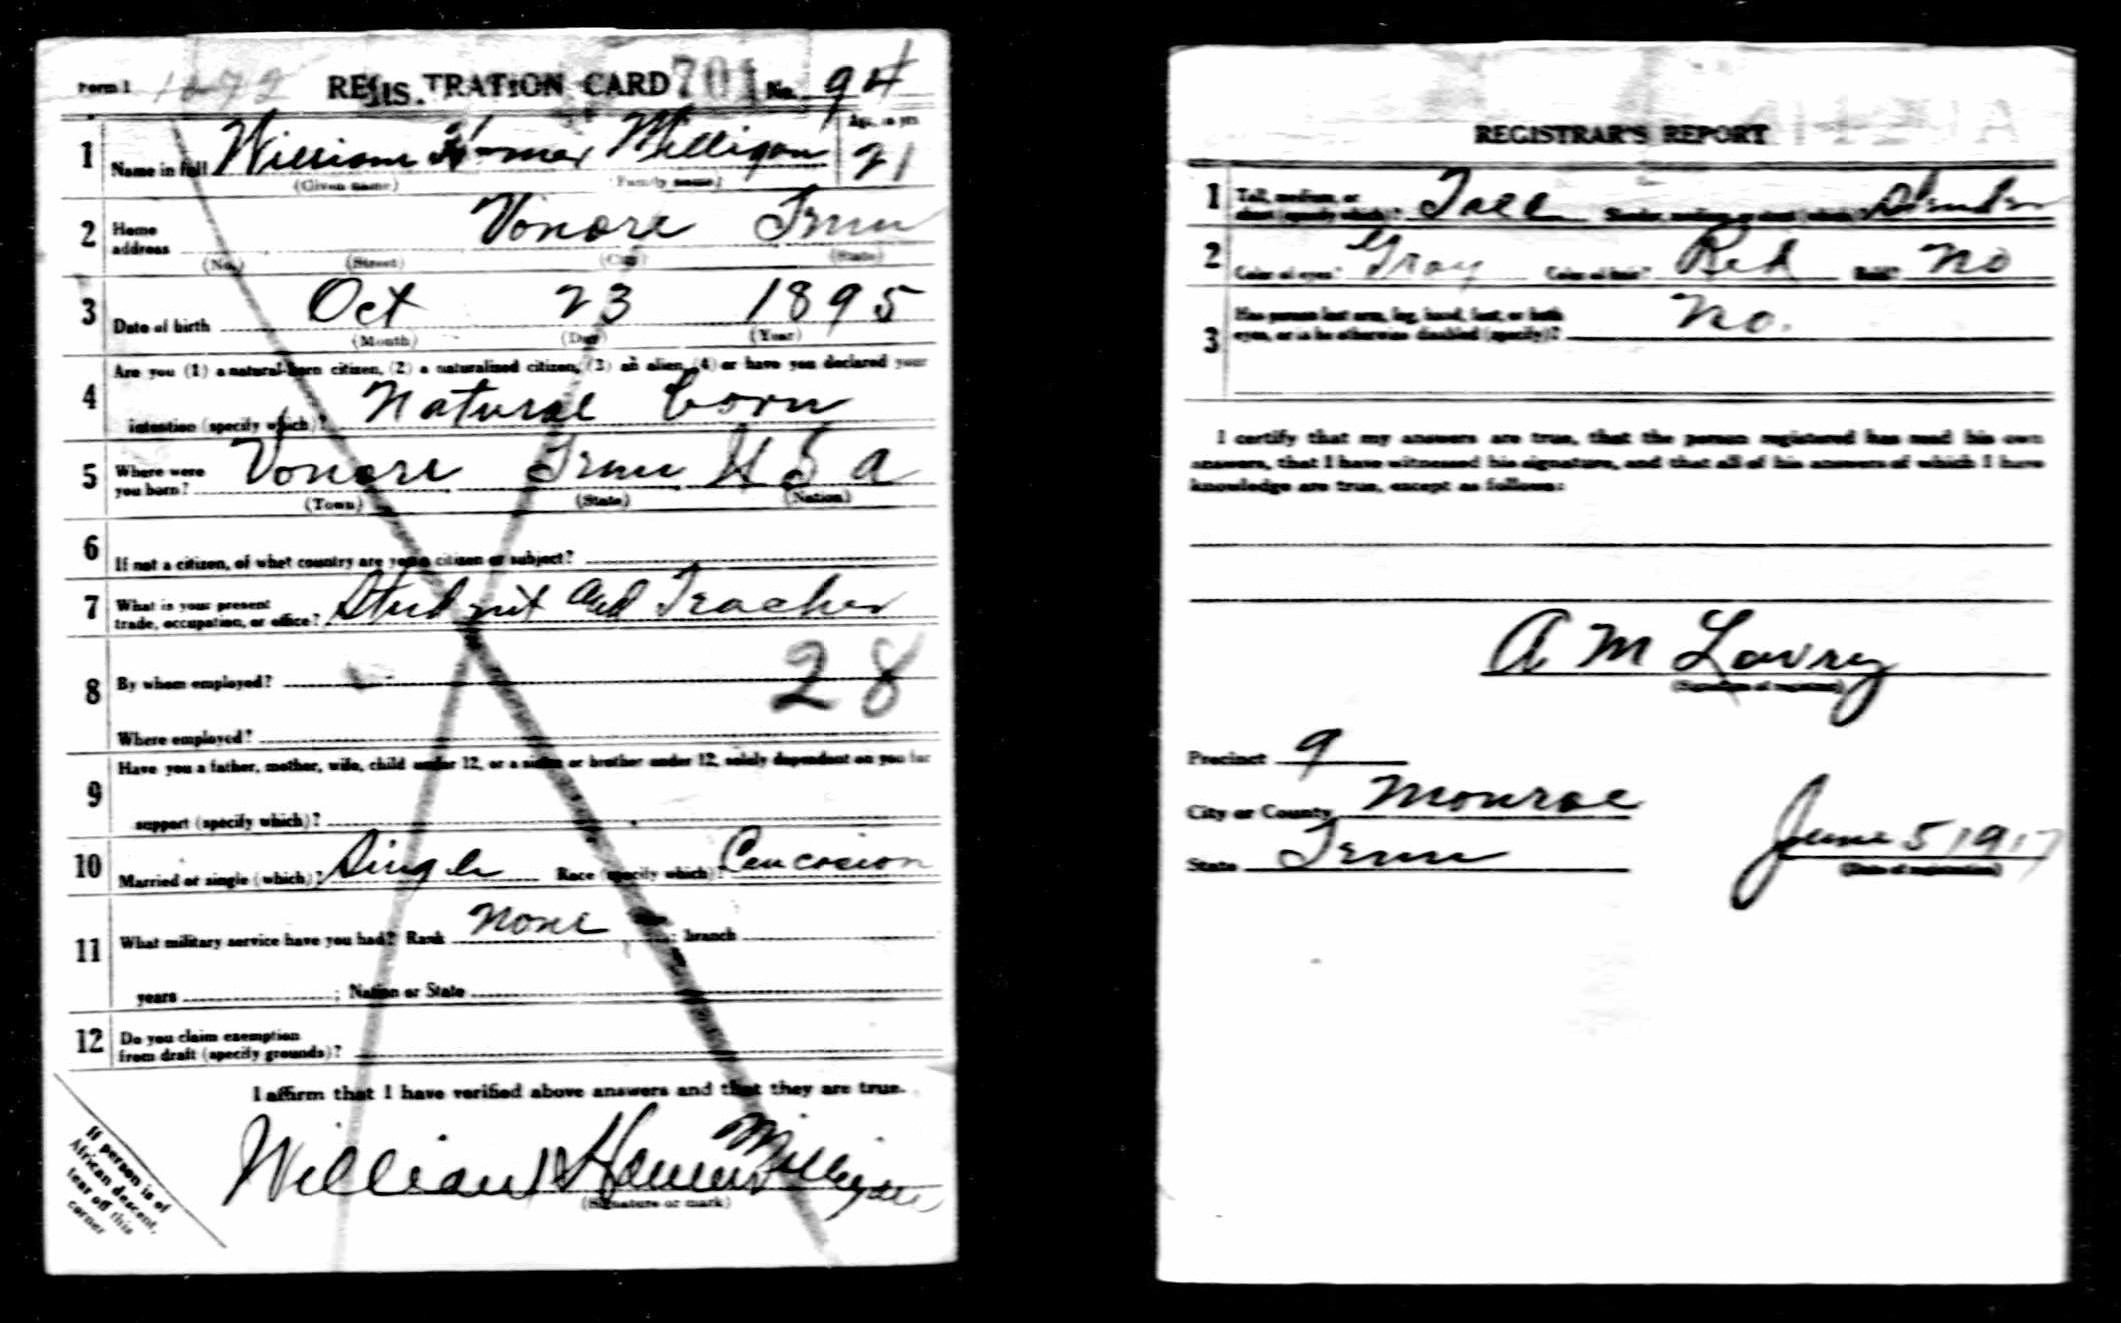 Form 1 REGISTRATION CARD 701 No. 94
1 Name in full William Homer Milligan Age, in yrs 21
(Given name) (Family name)
2 Home address Vonore Tenn
(No.) (Street) (City) (State)
3 Date of birth Oct 23 1895
(Month) (Day) (Year)
4 Are you (1) a natural-born citizen, (2) a naturalized citizen, (3) an alien, (4) or have you declared your
intention (specify which)? Natural born
5 Where were you born? Vonore Tenn U S a
(Town) (State) (Nation)
6 If not a citizen, of what country are you a citizen or subject?
7 What is your present trade, occupation, or office? Student and Teacher
8 By whom employed? 28
Where employed?
9 Have you a father, mother, wife, child under 12, or a sister or brother under 12, solely dependent on you for
support (specify which)?
10 Married or single (which)? Single Race (specify which)? Caucasion
11 What military service have you had? Rank None ; branch
years ; Nation or State
12 Do you claim exemption from draft (specify grounds)?
I affirm that I have verified above answers and that they are true.
William Homer Milligan
(Signature or mark)
If person is of
African descent,
tear off this
corner
REGISTRAR'S REPORT
1 Tall, medium, or short (specify which)? Tall Slender, medium, or stout (which)? Slender
2 Color of eyes? Gray Color of hair? Red Bald? No
3 Has person lost arm, leg, hand, foot, or both
eyes, or is he otherwise disabled (specify)? No.
I certify that my answers are true, that the person registered has read his own
answers, that I have witnessed his signature, and that all of his answers of which I have
knowledge are true, except as follows:
A M Lowry
(Signature of registrar)
Precinct 9
City or County Monroe
State Tenn June 5 1917
(Date of registration)